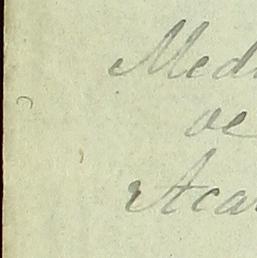 Med
oe
Aca